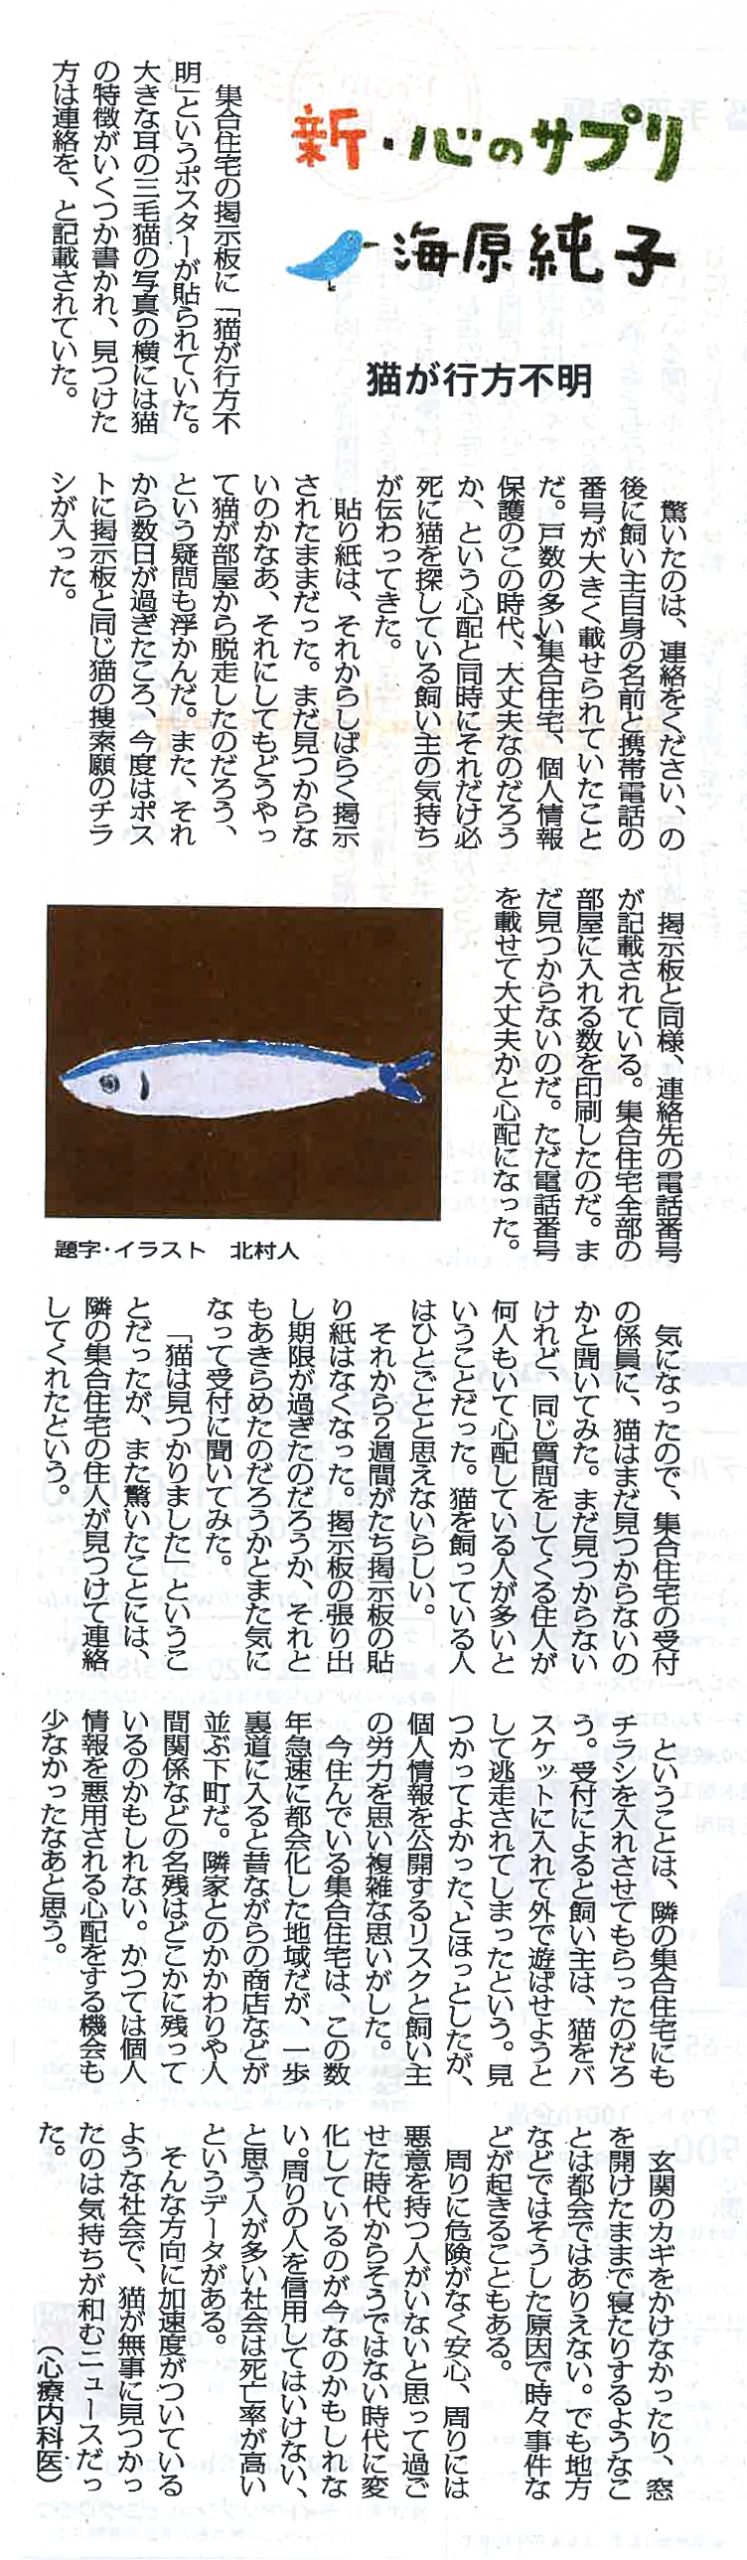 新・心のサプリ
海原純子
猫が行方不明
集合住宅の掲示板に「猫が行方不
明」というポスターが貼られていた。
大きな耳の三毛猫の写真の横には猫
の特徴がいくつか書かれ、見つけた
方は連絡を、と記載されていた。
驚いたのは、連絡をください、の
後に飼い主自身の名前と携帯電話の
番号が大きく載せられていたこと
だ。戸数の多い集合住宅、個人情報
保護のこの時代、大丈夫なのだろう
か、という心配と同時にそれだけ必
死に猫を探している飼い主の気持ち
が伝わってきた。
貼り紙は、それからしばらく掲示
されたままだった。まだ見つからな
いのかなあ、それにしてもどうやっ
て猫が部屋から脱走したのだろう、
という疑問も浮かんだ。また、それ
から数日が過ぎたころ、今度はポス
トに掲示板と同じ猫の捜索願のチラ
シが入った。
掲示板と同様、連絡先の電話番号
が記載されている。集合住宅全部の
部屋に入れる数を印刷したのだ。ま
だ見つからないのだ。ただ電話番号
を載せて大丈夫かと心配になった。
題字・イラスト　北村人
気になったので、集合住宅の受付
の係員に、猫はまだ見つからないの
かと聞いてみた。まだ見つからない
けれど、同じ質問をしてくる住人が
何人もいて心配している人が多いと
いうことだった。猫を飼っている人
はひとごとと思えないらしい。
それから2週間がたち掲示板の貼
り紙はなくなった。掲示板の張り出
し期限が過ぎたのだろうか、それと
もあきらめたのだろうかとまた気に
なって受付に聞いてみた。
「猫は見つかりました」というこ
とだったが、また驚いたことには、
隣の集合住宅の住人が見つけて連絡
してくれたという。
ということは、隣の集合住宅にも
チラシを入れさせてもらったのだろ
う。受付によると飼い主は、猫をバ
スケットに入れて外で遊ばせようと
して逃走されてしまったという。見
つかってよかった、とほっとしたが、
個人情報を公開するリスクと飼い主
の労力を思い複雑な思いがした。
今住んでいる集合住宅は、この数
年急速に都会化した地域だが、一歩
裏道に入ると昔ながらの商店などが
並ぶ下町だ。隣家とのかかわりや人
間関係などの名残はどこかに残って
いるのかもしれない。かつては個人
情報を悪用される心配をする機会も
少なかったなあと思う。
玄関のカギをかけなかったり、窓
を開けたままで寝たりするようなこ
とは都会ではありえない。でも地方
などではそうした原因で時々事件な
どが起きることもある。
周りに危険がなく安心、周りには
悪意を持つ人がいないと思って過ご
せた時代からそうではない時代に変
化しているのが今なのかもしれな
い。周りの人を信用してはいけない、
と思う人が多い社会は死亡率が高い
というデータがある。
そんな方向に加速度がついている
ような社会で、猫が無事に見つかっ
たのは気持ちが和むニュースだっ
た。（心療内科医）